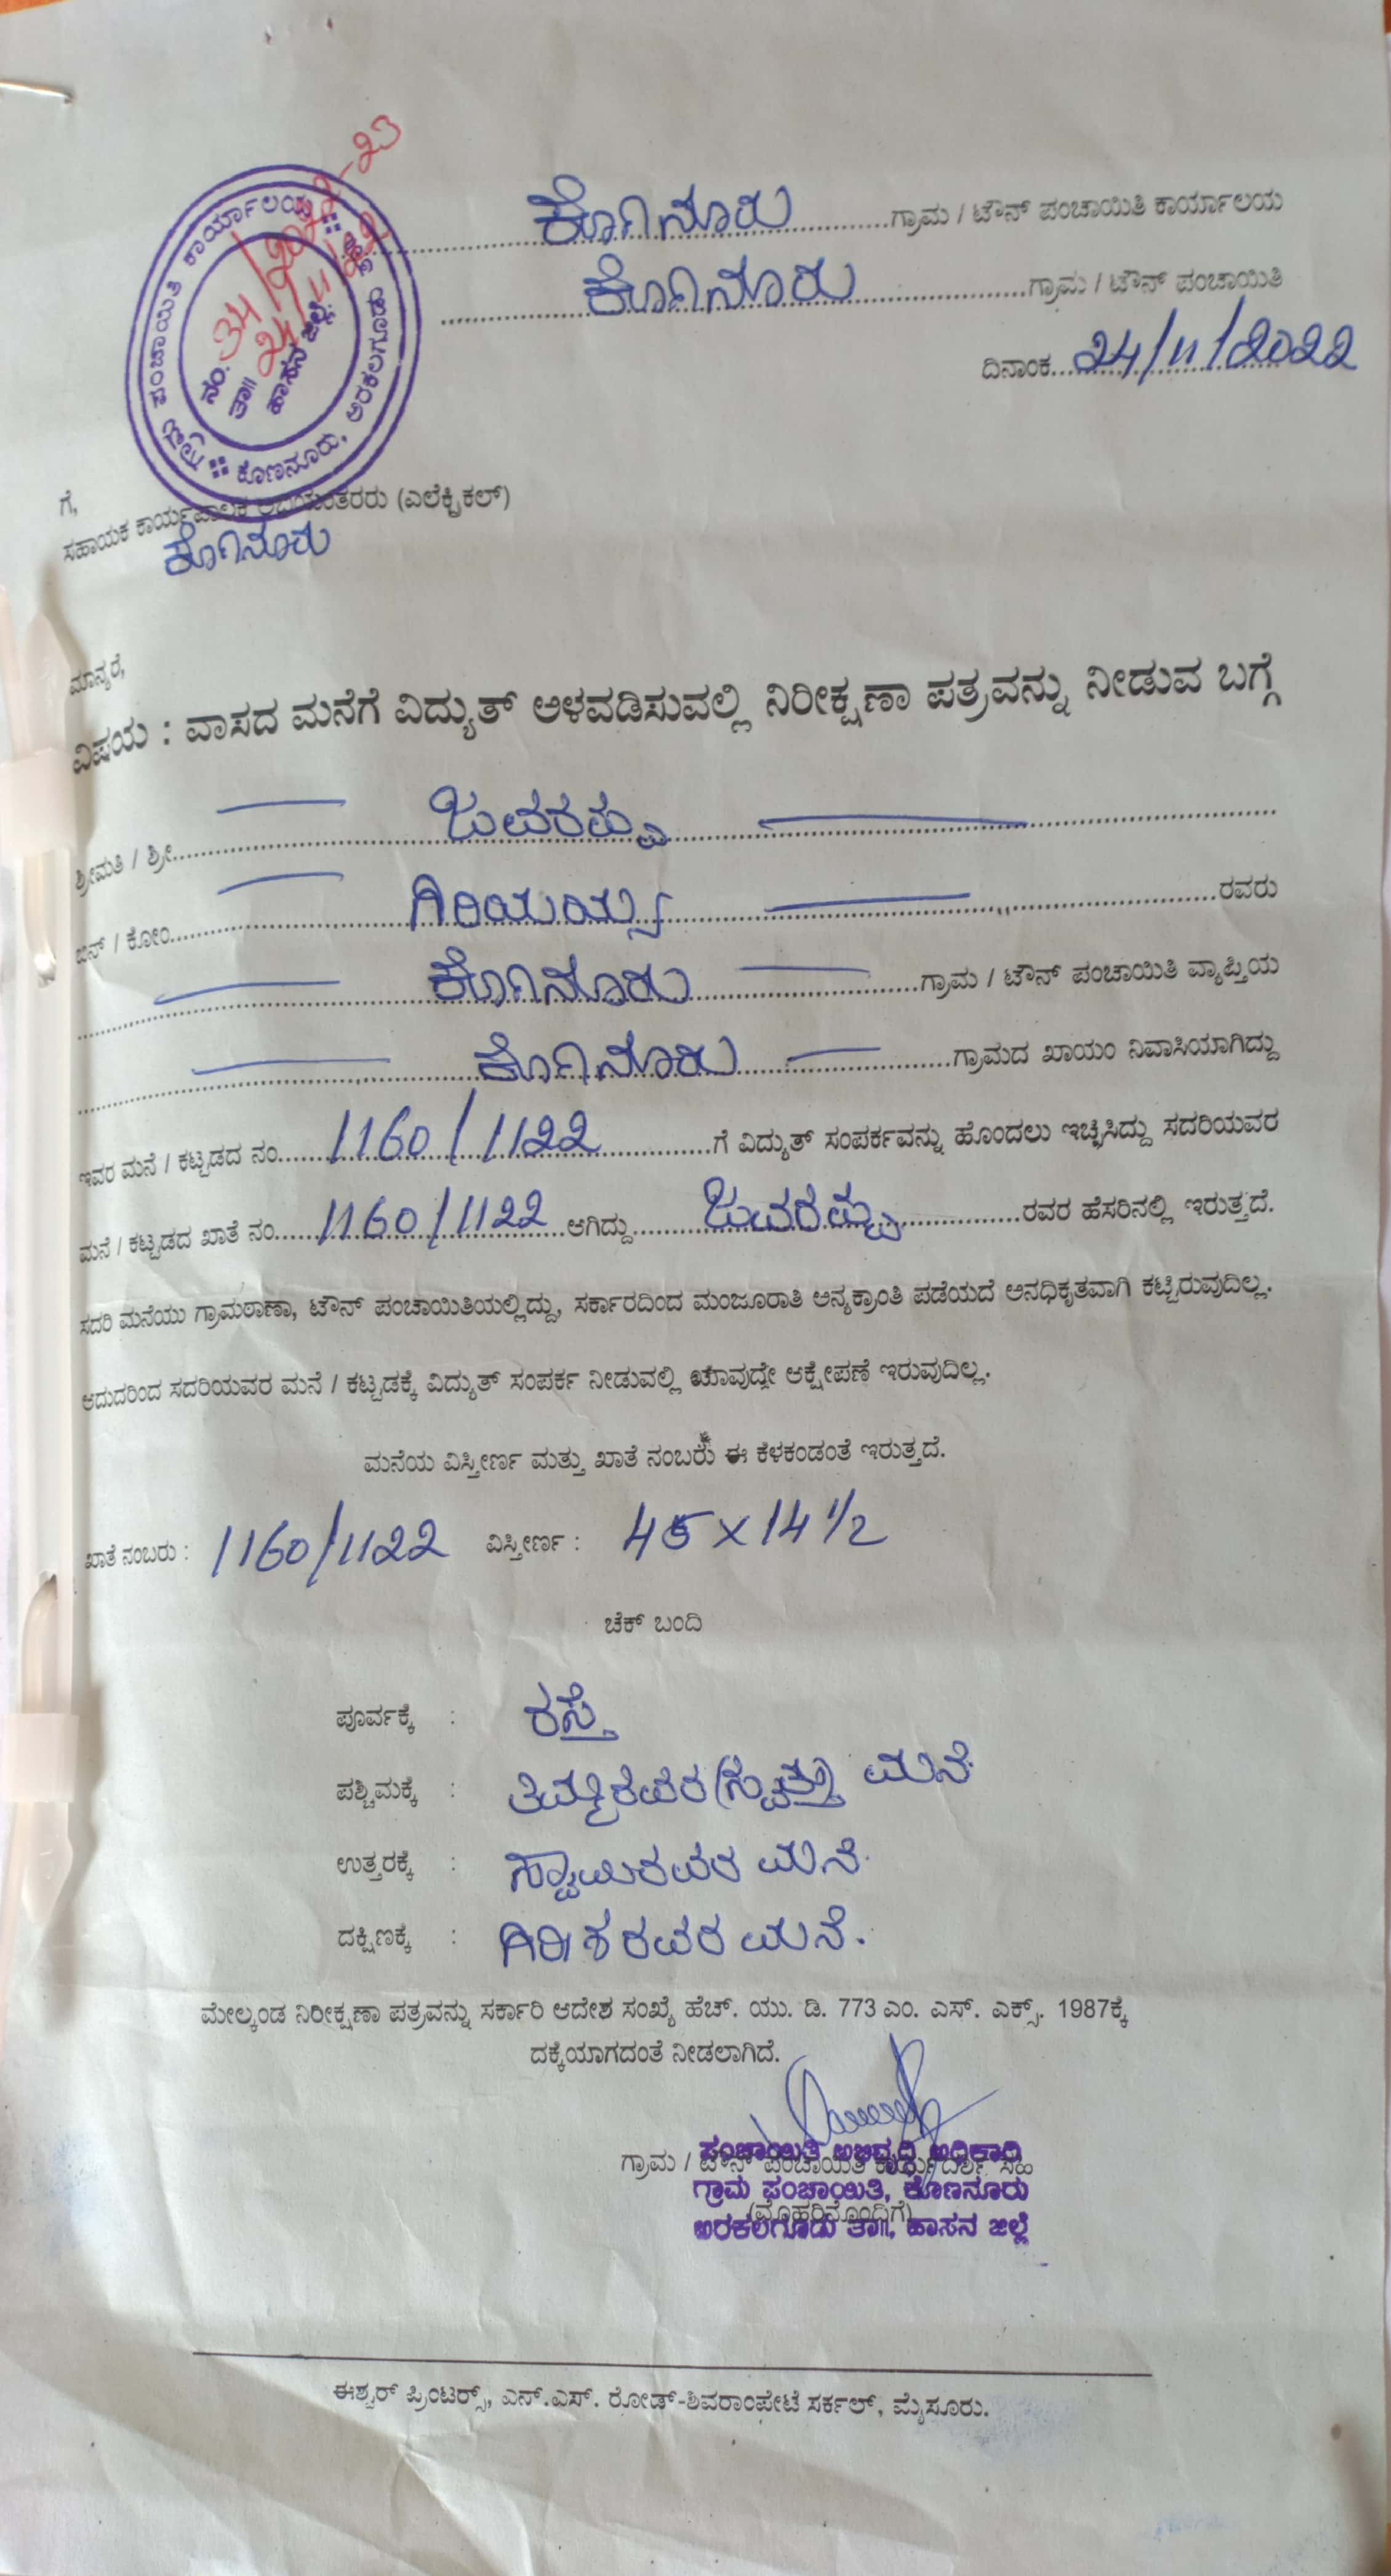 ಗ್ರಾಮ ಪಂಚಾಯಿತಿ ಕಾರ್ಯಾಲಯ
ಕೊಣನೂರು, ಅರಕಲಗೂಡು
ನಂ. 34/2022-23
ತಾ॥ 24/11/22
ಹಾಸನ ಜಿಲ್ಲೆ.
ಕೊಣನೂರು ಗ್ರಾಮ / ಟೌನ್ ಪಂಚಾಯಿತಿ ಕಾರ್ಯಾಲಯ
ಕೊಣನೂರು ಗ್ರಾಮ / ಟೌನ್ ಪಂಚಾಯಿತಿ
ದಿನಾಂಕ 24/11/2022
ಗೆ,
ಸಹಾಯಕ ಕಾರ್ಯಪಾಲಕ ಅಭಿಯಂತರರು (ಎಲೆಕ್ಟ್ರಿಕಲ್)
ಕೊಣನೂರು
ಮಾನ್ಯರೆ,
ವಿಷಯ : ವಾಸದ ಮನೆಗೆ ವಿದ್ಯುತ್ ಅಳವಡಿಸುವಲ್ಲಿ ನಿರೀಕ್ಷಣಾ ಪತ್ರವನ್ನು ನೀಡುವ ಬಗ್ಗೆ
ಶ್ರೀಮತಿ / ಶ್ರೀ ಜವರಪ್ಪ
ಬಿನ್ / ಕೋಂ ಗಿರಿಯಯ್ಯ ರವರು
ಕೊಣನೂರು ಗ್ರಾಮ / ಟೌನ್ ಪಂಚಾಯಿತಿ ವ್ಯಾಪ್ತಿಯ
ಕೊಣನೂರು ಗ್ರಾಮದ ಖಾಯಂ ನಿವಾಸಿಯಾಗಿದ್ದು
ಇವರ ಮನೆ / ಕಟ್ಟಡದ ನಂ 1160/1122 ಗೆ ವಿದ್ಯುತ್ ಸಂಪರ್ಕವನ್ನು ಹೊಂದಲು ಇಚ್ಛಿಸಿದ್ದು ಸದರಿಯವರ
ಮನೆ / ಕಟ್ಟಡದ ಖಾತೆ ನಂ 1160/1122 ಆಗಿದ್ದು ಜವರಪ್ಪ ರವರ ಹೆಸರಿನಲ್ಲಿ ಇರುತ್ತದೆ.
ಸದರಿ ಮನೆಯು ಗ್ರಾಮಠಾಣಾ, ಟೌನ್ ಪಂಚಾಯಿತಿಯಲ್ಲಿದ್ದು, ಸರ್ಕಾರದಿಂದ ಮಂಜೂರಾತಿ ಅನ್ಯಕ್ರಾಂತಿ ಪಡೆಯದೆ ಅನಧಿಕೃತವಾಗಿ ಕಟ್ಟಿರುವುದಿಲ್ಲ.
ಆದುದರಿಂದ ಸದರಿಯವರ ಮನೆ / ಕಟ್ಟಡಕ್ಕೆ ವಿದ್ಯುತ್ ಸಂಪರ್ಕ ನೀಡುವಲ್ಲಿ ಯಾವುದೇ ಆಕ್ಷೇಪಣೆ ಇರುವುದಿಲ್ಲ.
ಮನೆಯ ವಿಸ್ತೀರ್ಣ ಮತ್ತು ಖಾತೆ ನಂಬರು ಈ ಕೆಳಕಂಡಂತೆ ಇರುತ್ತದೆ.
ಖಾತೆ ನಂಬರು : 1160/1122 ವಿಸ್ತೀರ್ಣ : 45 x 14 1/2
ಚೆಕ್ ಬಂದಿ
ಪೂರ್ವಕ್ಕೆ : ರಸ್ತೆ
ಪಶ್ಚಿಮಕ್ಕೆ : ಮನೆ
ಉತ್ತರಕ್ಕೆ : ಸ್ವಾಮಿರವರ ಮನೆ.
ದಕ್ಷಿಣಕ್ಕೆ : ಗಿರೀಶರವರ ಮನೆ.
ಮೇಲ್ಕಂಡ ನಿರೀಕ್ಷಣಾ ಪತ್ರವನ್ನು ಸರ್ಕಾರಿ ಆದೇಶ ಸಂಖ್ಯೆ ಹೆಚ್. ಯು. ಡಿ. 773 ಎಂ. ಎಸ್. ಎಕ್ಸ್. 1987ಕ್ಕೆ
ದಕ್ಕೆಯಾಗದಂತೆ ನೀಡಲಾಗಿದೆ.
ಗ್ರಾಮ / ಟೌನ್ ಪಂಚಾಯಿತಿ ಕಾರ್ಯದರ್ಶಿ ಸಹಿ
(ಮೊಹರಿನೊಂದಿಗೆ)
ಪಂಚಾಯಿತಿ ಅಭಿವೃದ್ಧಿ ಅಧಿಕಾರಿ
ಗ್ರಾಮ ಪಂಚಾಯಿತಿ, ಕೊಣನೂರು
ಅರಕಲಗೂಡು ತಾ॥, ಹಾಸನ ಜಿಲ್ಲೆ
ಈಶ್ವರ್ ಪ್ರಿಂಟರ್ಸ್, ಎನ್.ಎಸ್. ರೋಡ್-ಶಿವರಾಂಪೇಟೆ ಸರ್ಕಲ್, ಮೈಸೂರು.